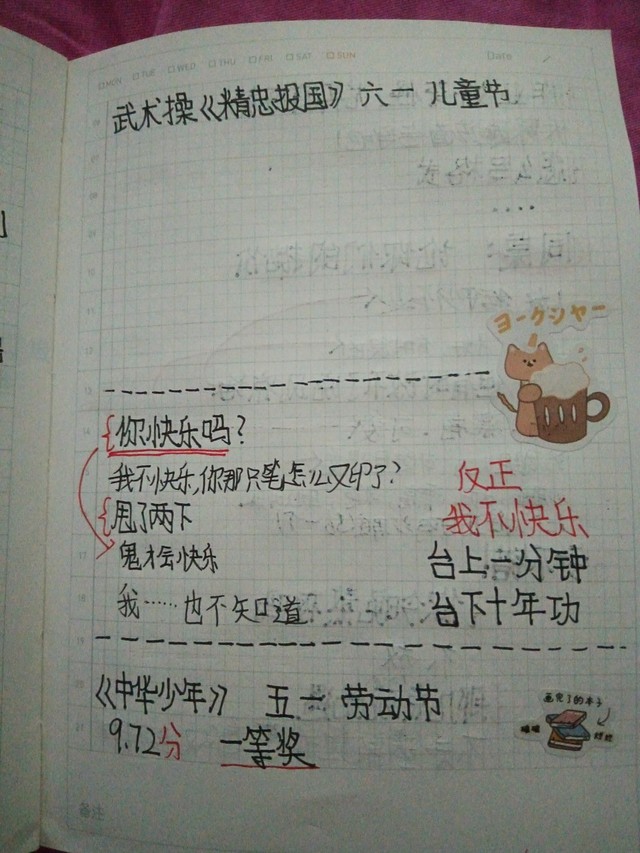 MON TUE WED THU FRI SAT SUN Date
武术操《精忠报国》 六一 儿童节
ヨークシャー
{你快乐吗?
我不快乐,你那只笔怎么又印了? 反正
{甩了两下 我不快乐
鬼才会快乐 台上一分钟
我……也不知道 台下十年功
《中华少年》 五一 劳动节
9.72分 一等奖
画完了的本子